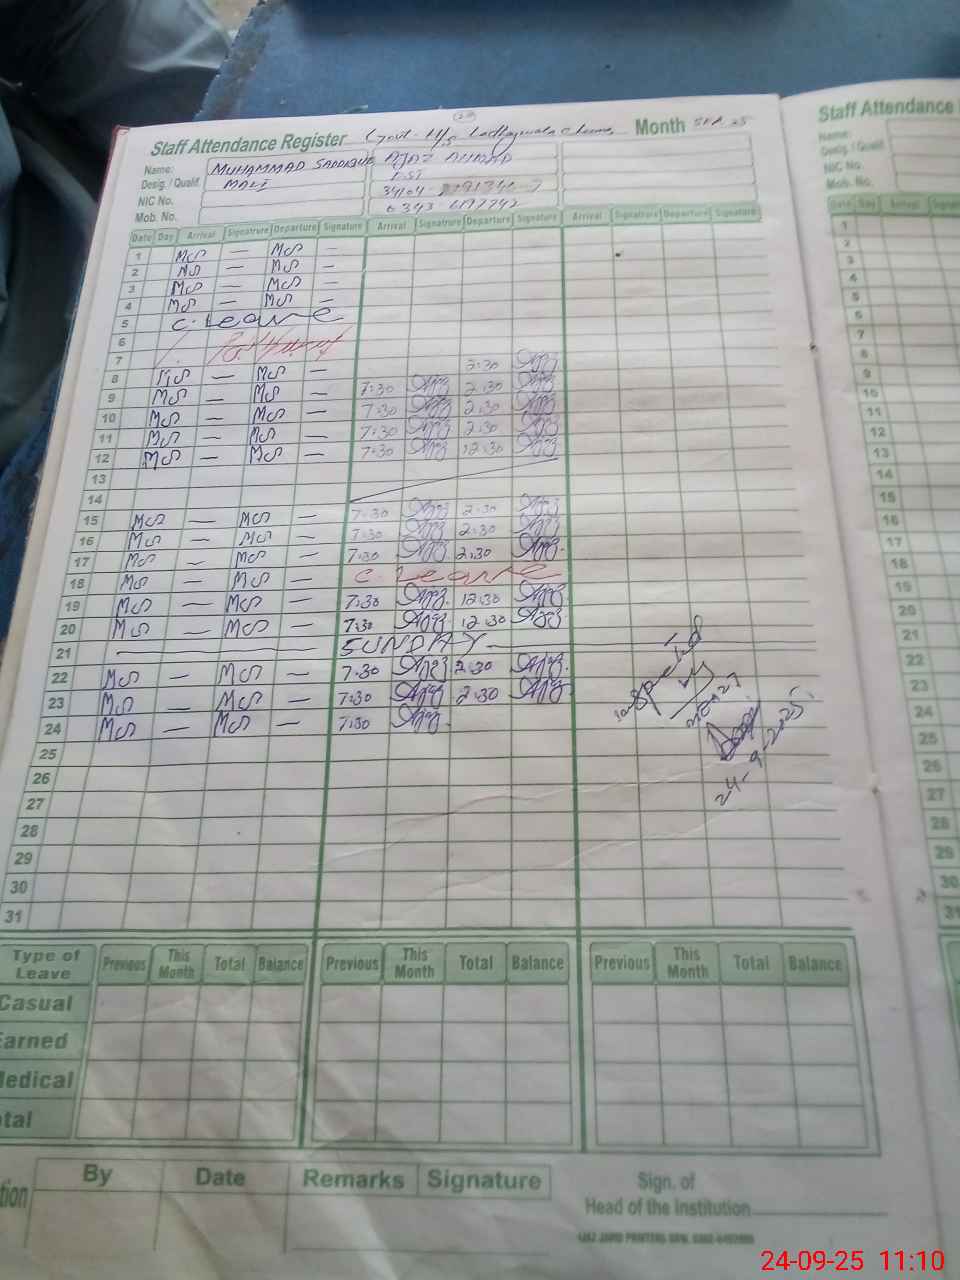 Staff Attendance Register Govt. H/S Ladhaywala Cheema Month SEP. 25
Name: MUHAMMAD SADDIQUE AJAZ AHMAD
Desig. / Qualif. MALI EST
NIC No. 34104
Mob. No. 0343
Date Day Arrival Signature Departure Signature Arrival Signature Departure Signature Arrival Signature Departure Signature
1 MS — MS —
2 MS — MS —
3 MS — MS —
4 MS — MS —
5 C. Leave
6
7
8 MS — MS — 2:30
9 MS — MS — 7:30 2:30
10 MS — MS — 7:30 2:30
11 MS — MS — 7:30 2:30
12 MS — MS — 7:30 12:30
13
14
15 MS — MS — 7:30 2:30
16 MS — MS — 7:30 2:30
17 MS — MS — 7:30 2:30
18 MS — MS — C. Leave
19 MS — MS — 7:30 12:30
20 MS — MS — 7:30 12:30
21 SUNDAY
22 MS — MS — 7:30 2:30
23 MS — MS — 7:30 2:30
24 MS — MS — 7:30
25
26
27
28
29
30
31
Inspected
by
24-9-2025
Type of Leave Previous This Month Total Balance Previous This Month Total Balance Previous This Month Total Balance
Casual
Earned
Medical
otal
tion By Date Remarks Signature
Sign. of
Head of the Institution
Staff Attendance
Name:
Desig. / Qualif.
NIC No.
Mob. No.
Date Day Arrival
1
2
3
4
5
6
7
8
9
10
11
12
13
14
15
16
17
18
19
20
21
22
23
24
25
26
27
28
29
30
31
24-09-25 11:10